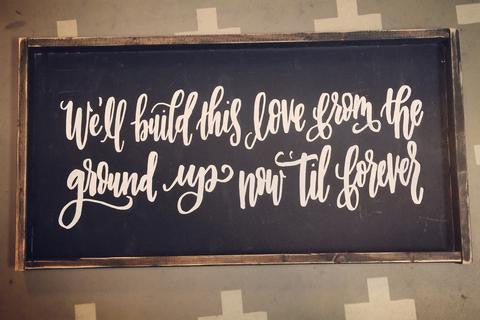 We'll build this love from the
ground up now 'til forever